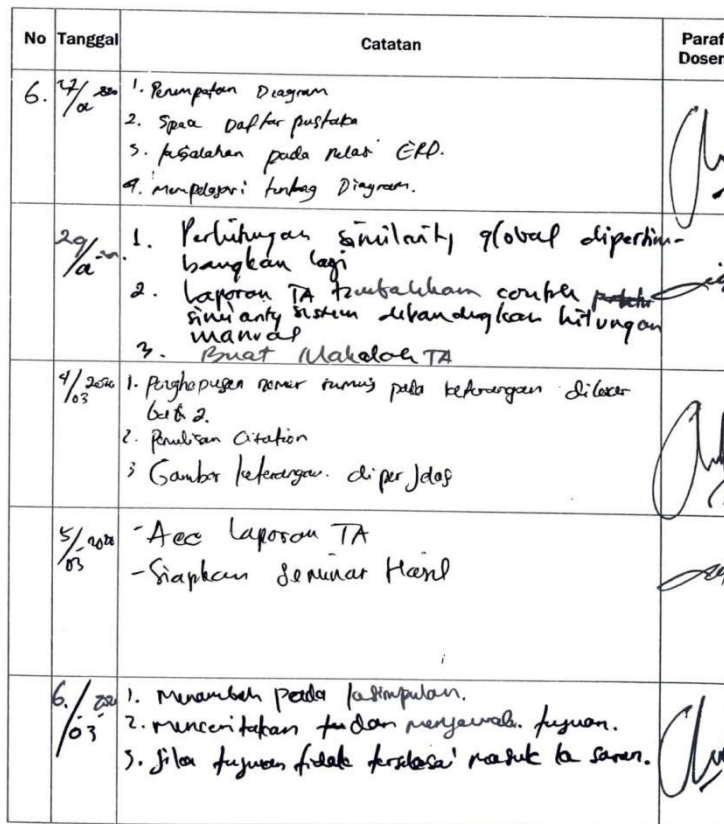 No Tanggal Catatan Paraf Dosen
6. 27/02 1. Penempatan Diagram
2. Space Daftar pustaka
3. kesalahan pada relasi ERD.
4. mempelajari tentang Diagram.
29/02 1. Perhitungan similarity global dipertim-
bangkan lagi
2. Laporan TA tambahkan contoh
similarity sistem dibandingkan hitungan
manual
3. Buat Makalah TA
4/03 2020 1. Penghapusan nomer rumus pada keterangan diluar
bab 2.
2. Penulisan Citation
3 Gambar keterangan. diperjelas
5/03 2020 - Acc Laporan TA
- Siapkan Seminar Hasil
6./03 1. Menambah pada kesimpulan.
2. menceritakan dan menjawab. tujuan.
3. Jika tujuan tidak terselesai masuk ke saran.